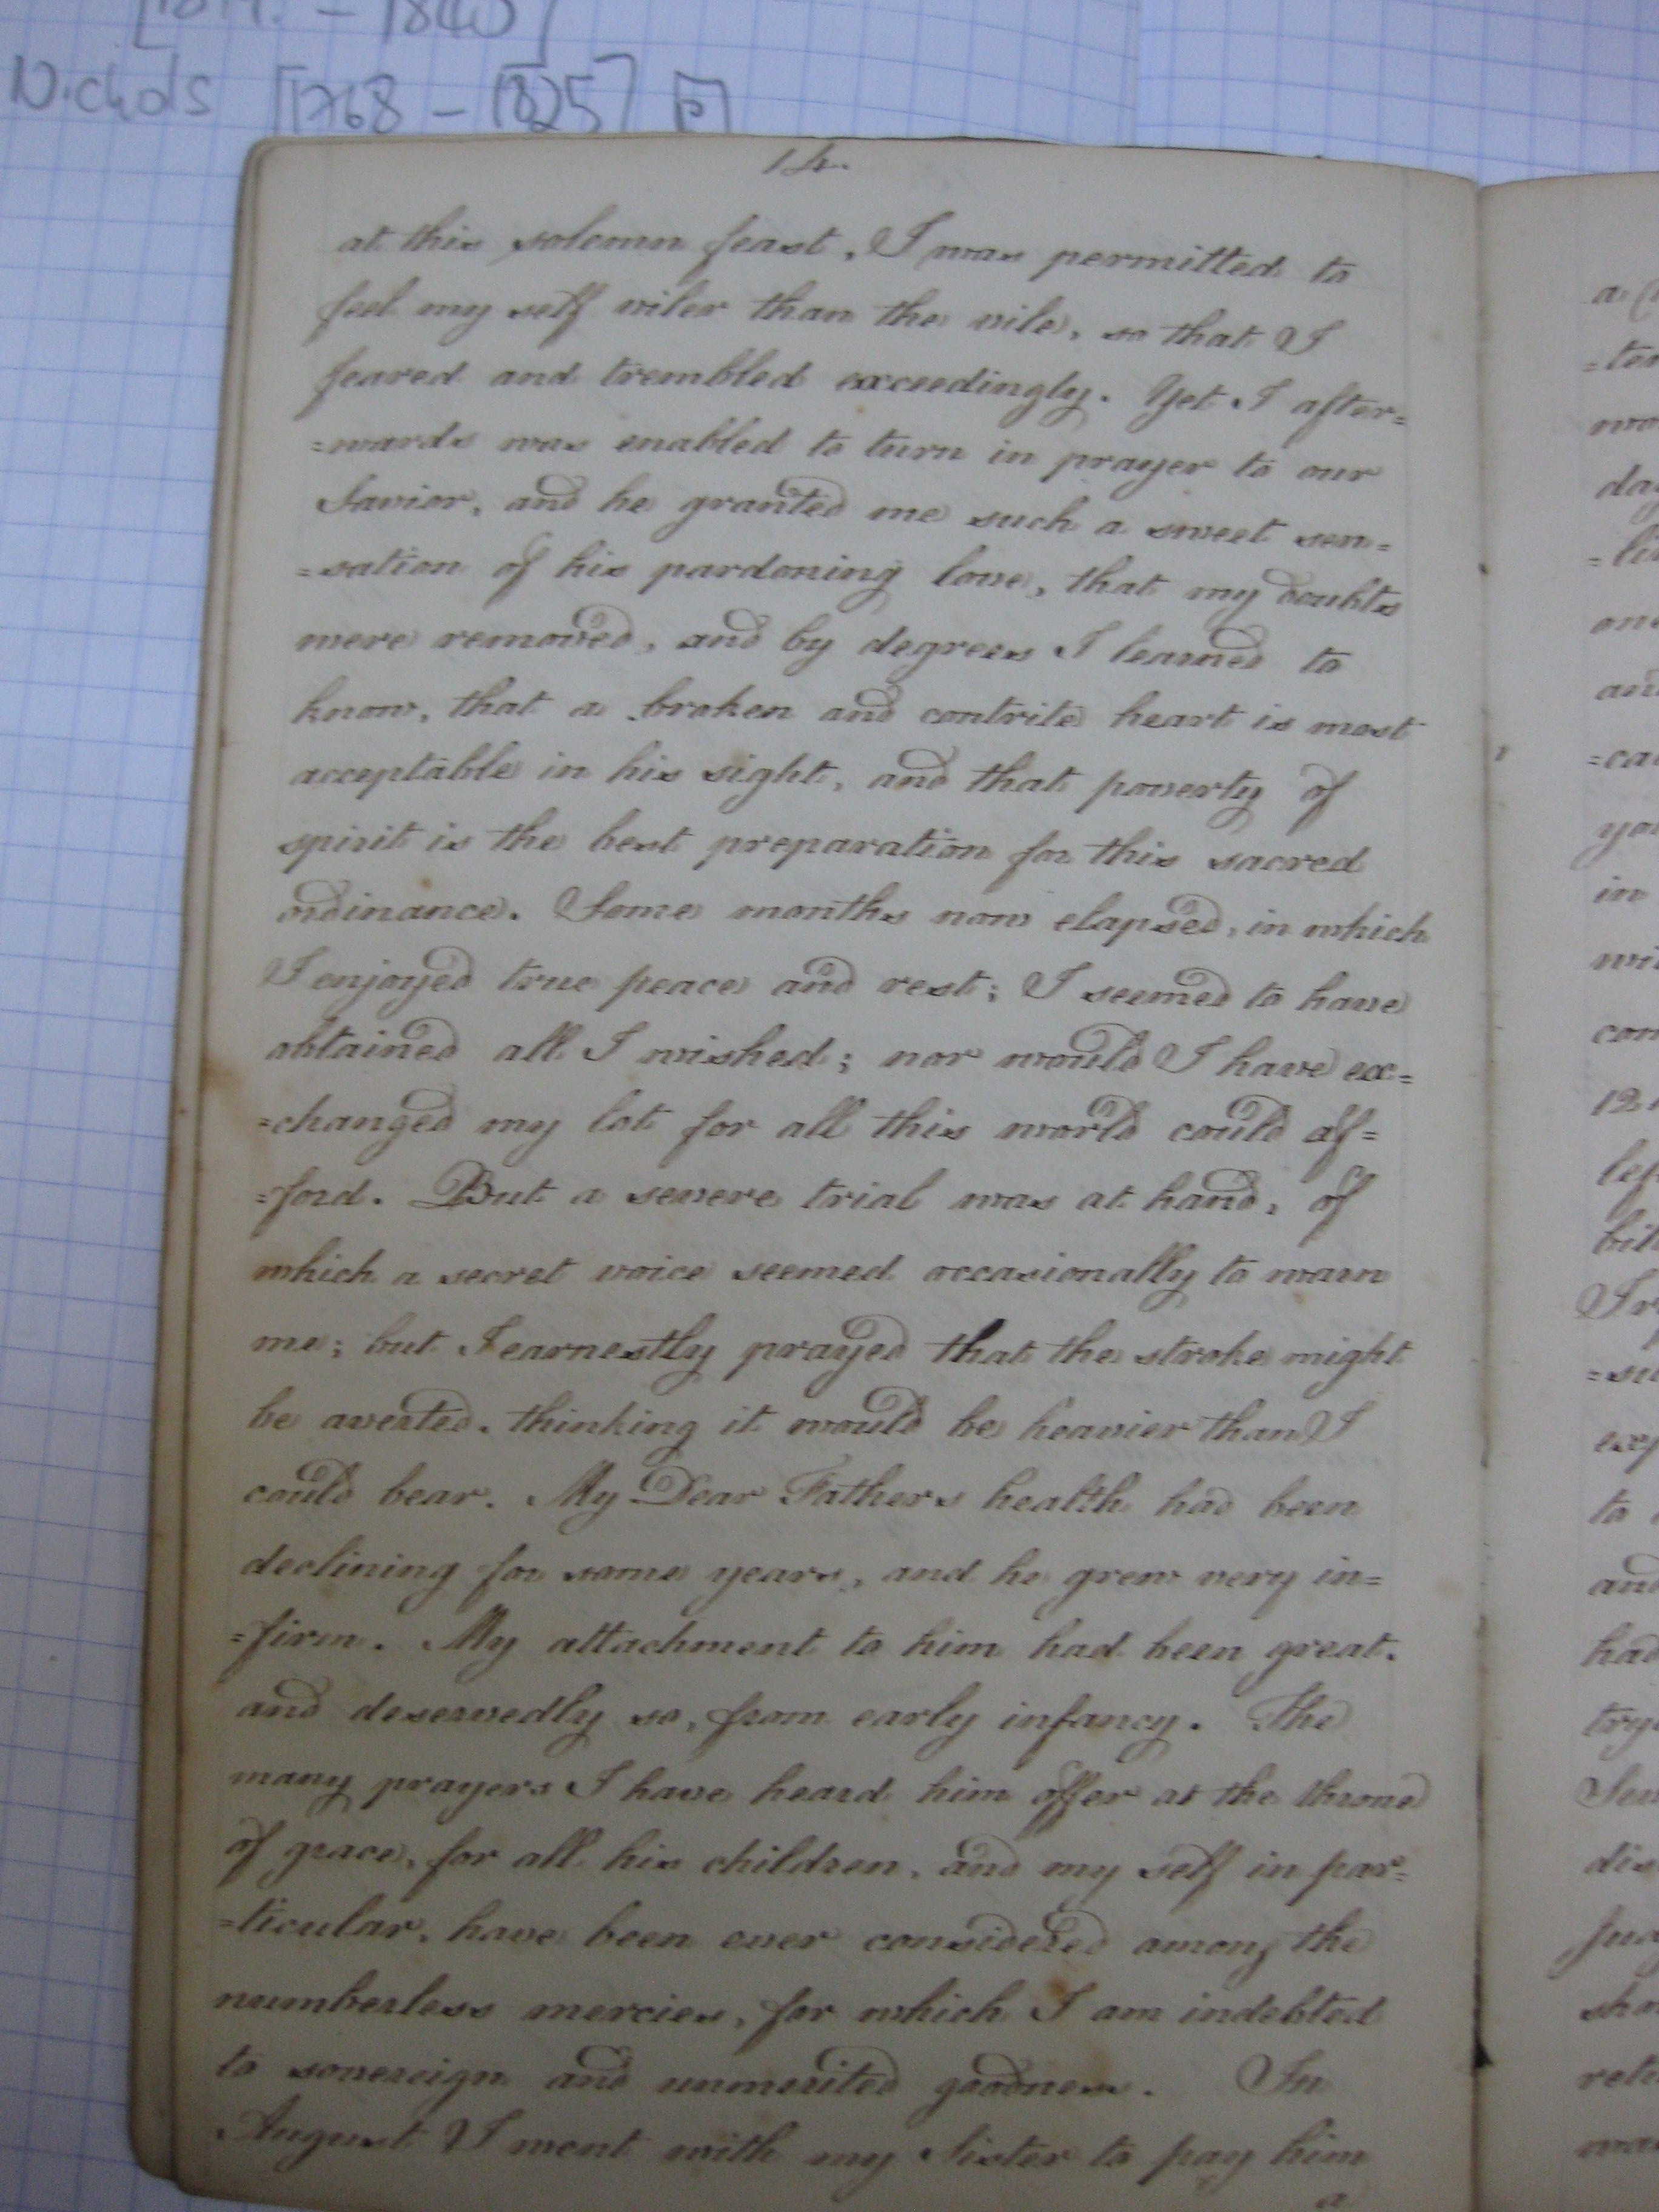 Nichols [1768 - 1825]
14.
at this solemn feast, I was permitted to
feel my self viler than the vile, so that I
feared and trembled exceedingly. Yet I after=
=wards was enabled to turn in prayer to our
Savior, and he granted me such a sweet sen=
=sation of his pardoning love, that my doubts
were removed, and by degrees I learned to
know, that a broken and contrite heart is most
acceptable in his sight, and that poverty of
spirit is the best preparation for this sacred
ordinance. Some months now elapsed, in which
I enjoyed true peace and rest; I seemed to have
obtained all I wished; nor would I have ex=
=changed my lot for all this world could af=
=ford. But a severe trial was at hand, of
which a secret voice seemed occasionally to warn
me; but I earnestly prayed that the stroke might
be averted, thinking it would be heavier than I
could bear. My Dear Fathers health had been
declining for some years, and he grew very in=
=firm. My attachment to him had been great,
and deservedly so, from early infancy. The
many prayers I have heard him offer at the throne
of grace, for all his children, and my self in par=
=ticular, have been ever considered among the
numberless mercies, for which I am indebted
to sovereign and unmerited goodness. In
August I went with my Sister to pay him
a